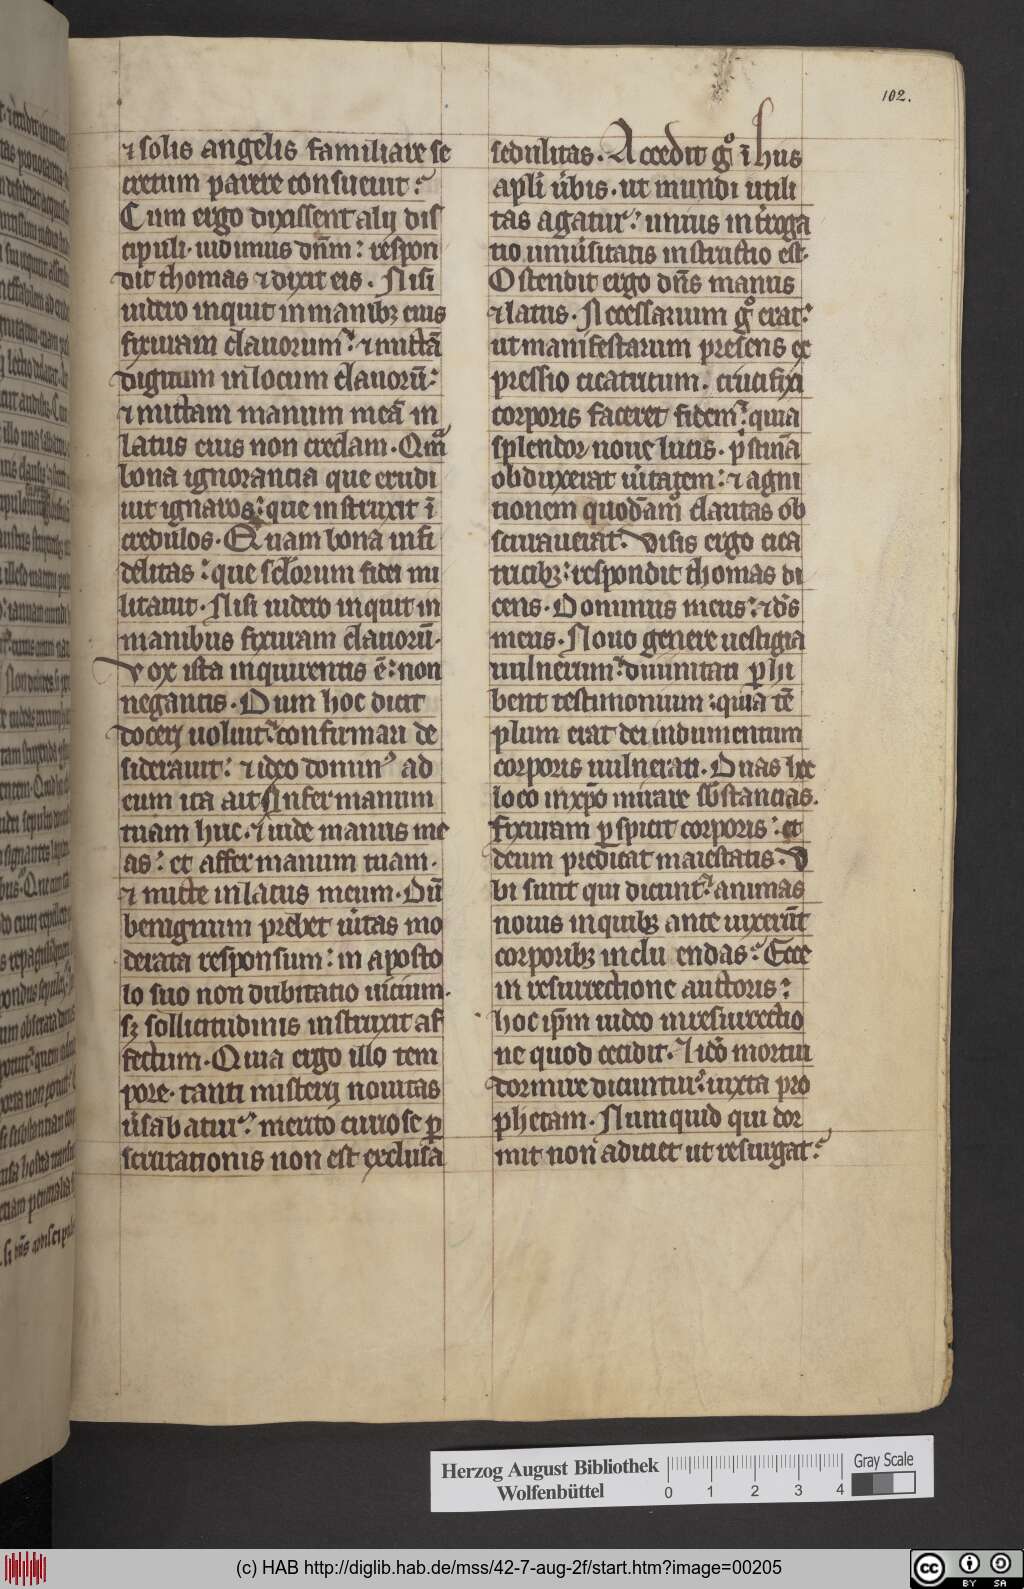 102.
⁊ solis angelis familiare se
cretum parere consueuit.
Cum ergo dixissent alij dis
cipuli. uidimus dn̄m: respon
dit thomas ⁊ dixit eis. Nisi
uidero inquit in manibꝫ eius
fixuram clauorum: ⁊ mittā
digitum in locum clauorū:
⁊ mittam manum meā in
latus eius non credam. Qm̊
bona ignorancia que erudi
uit ignaros: que instruxit ī
credulos. Quam bona infi
delitas: que sc̄lorum fidei mi
litauit. Nisi uidero inquit in
manibus fixuram clauorū.
Vox ista inquirentis ē: non
negantis. Dum hoc dicit
docerj uoluit: confirmari de
siderauit: ⁊ ideo dominꝰ ad
eum ita ait Infer manum
tuam huc. ⁊ uide manus me
as: et affer manum tuam.
⁊ mitte in latus meum. Dū
benignum prebet ūitas mo
derata responsum: in aposto
lo suo non dubitatio uicium.
sꝫ sollicitudinis instruxit af
fectum. Quia ergo illo tem
pore. tanti misterij nouitas
ūsabatur: merito curiose ꝑ
scrutationis non est exclusa
sedulitas. Accedit gͦ īhus
apli ūbis. ut mundi utili
tas agatur: unius int̄roga
tio uniūsitatis instructio est.
Ostendit ergo dn̄s manus
⁊ latus. Necessarium gͦ erat:
ut manifestarum presens ex
pressio cicatricum. crucifixi
corporis faceret fidem: quia
splendor noue lucis. pͥstinā
obduxerat ūitatem: ⁊ agni
tionem quodam̊ claritas ob
scuraucrat. Visis ergo cica
tricibꝫ: respondit thomas di
cens. Dominus meus: ⁊ ds̄
meus. Nouo genere uestigia
uulnerum: diuinitati ꝑhi
bent testimonium: quia tē
plum erat dei indumentum
corporis uulnerati. Duas hoc
loco in xp̄o mirare sb̄stancias.
fixuram ꝑspicit corporis: et
deum predicat maiestatis. V
bi sunt qui dicunt: animas
nouis in quibꝫ ante uixerūt
corporibꝫ inclu endas: Ecce
in resurrectione auctoris:
hoc ip̄m uideo in resurrectio
ne quod cecidit. Ideo mortui
dormire dicuntur: iuxta pro
phetam. Numquid qui dor
mit non adiciet ut resurgat:
Herzog August Bibliothek
Wolfenbüttel
0 1 2 3 4
Gray Scale
(c) HAB http://diglib.hab.de/mss/42-7-aug-2f/start.htm?image=00205
cc BY SA